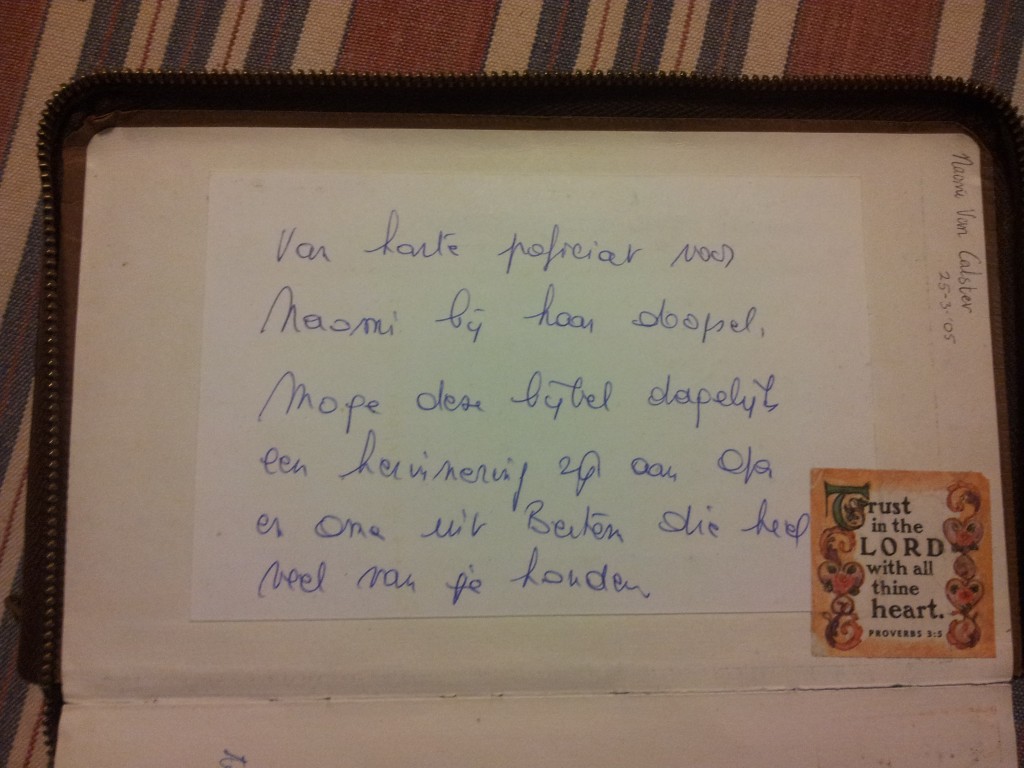 Van harte poficiat voor
Naomi bij haar doopsel.
Moge deze bijbel dagelijks
een herinnering zijn aan Opa
en oma uit Berten die heel
veel van je houden
Naomi Van Calster
25-3-'05
Trust
in the
LORD
with all
thine
heart.
PROVERBS 3:5